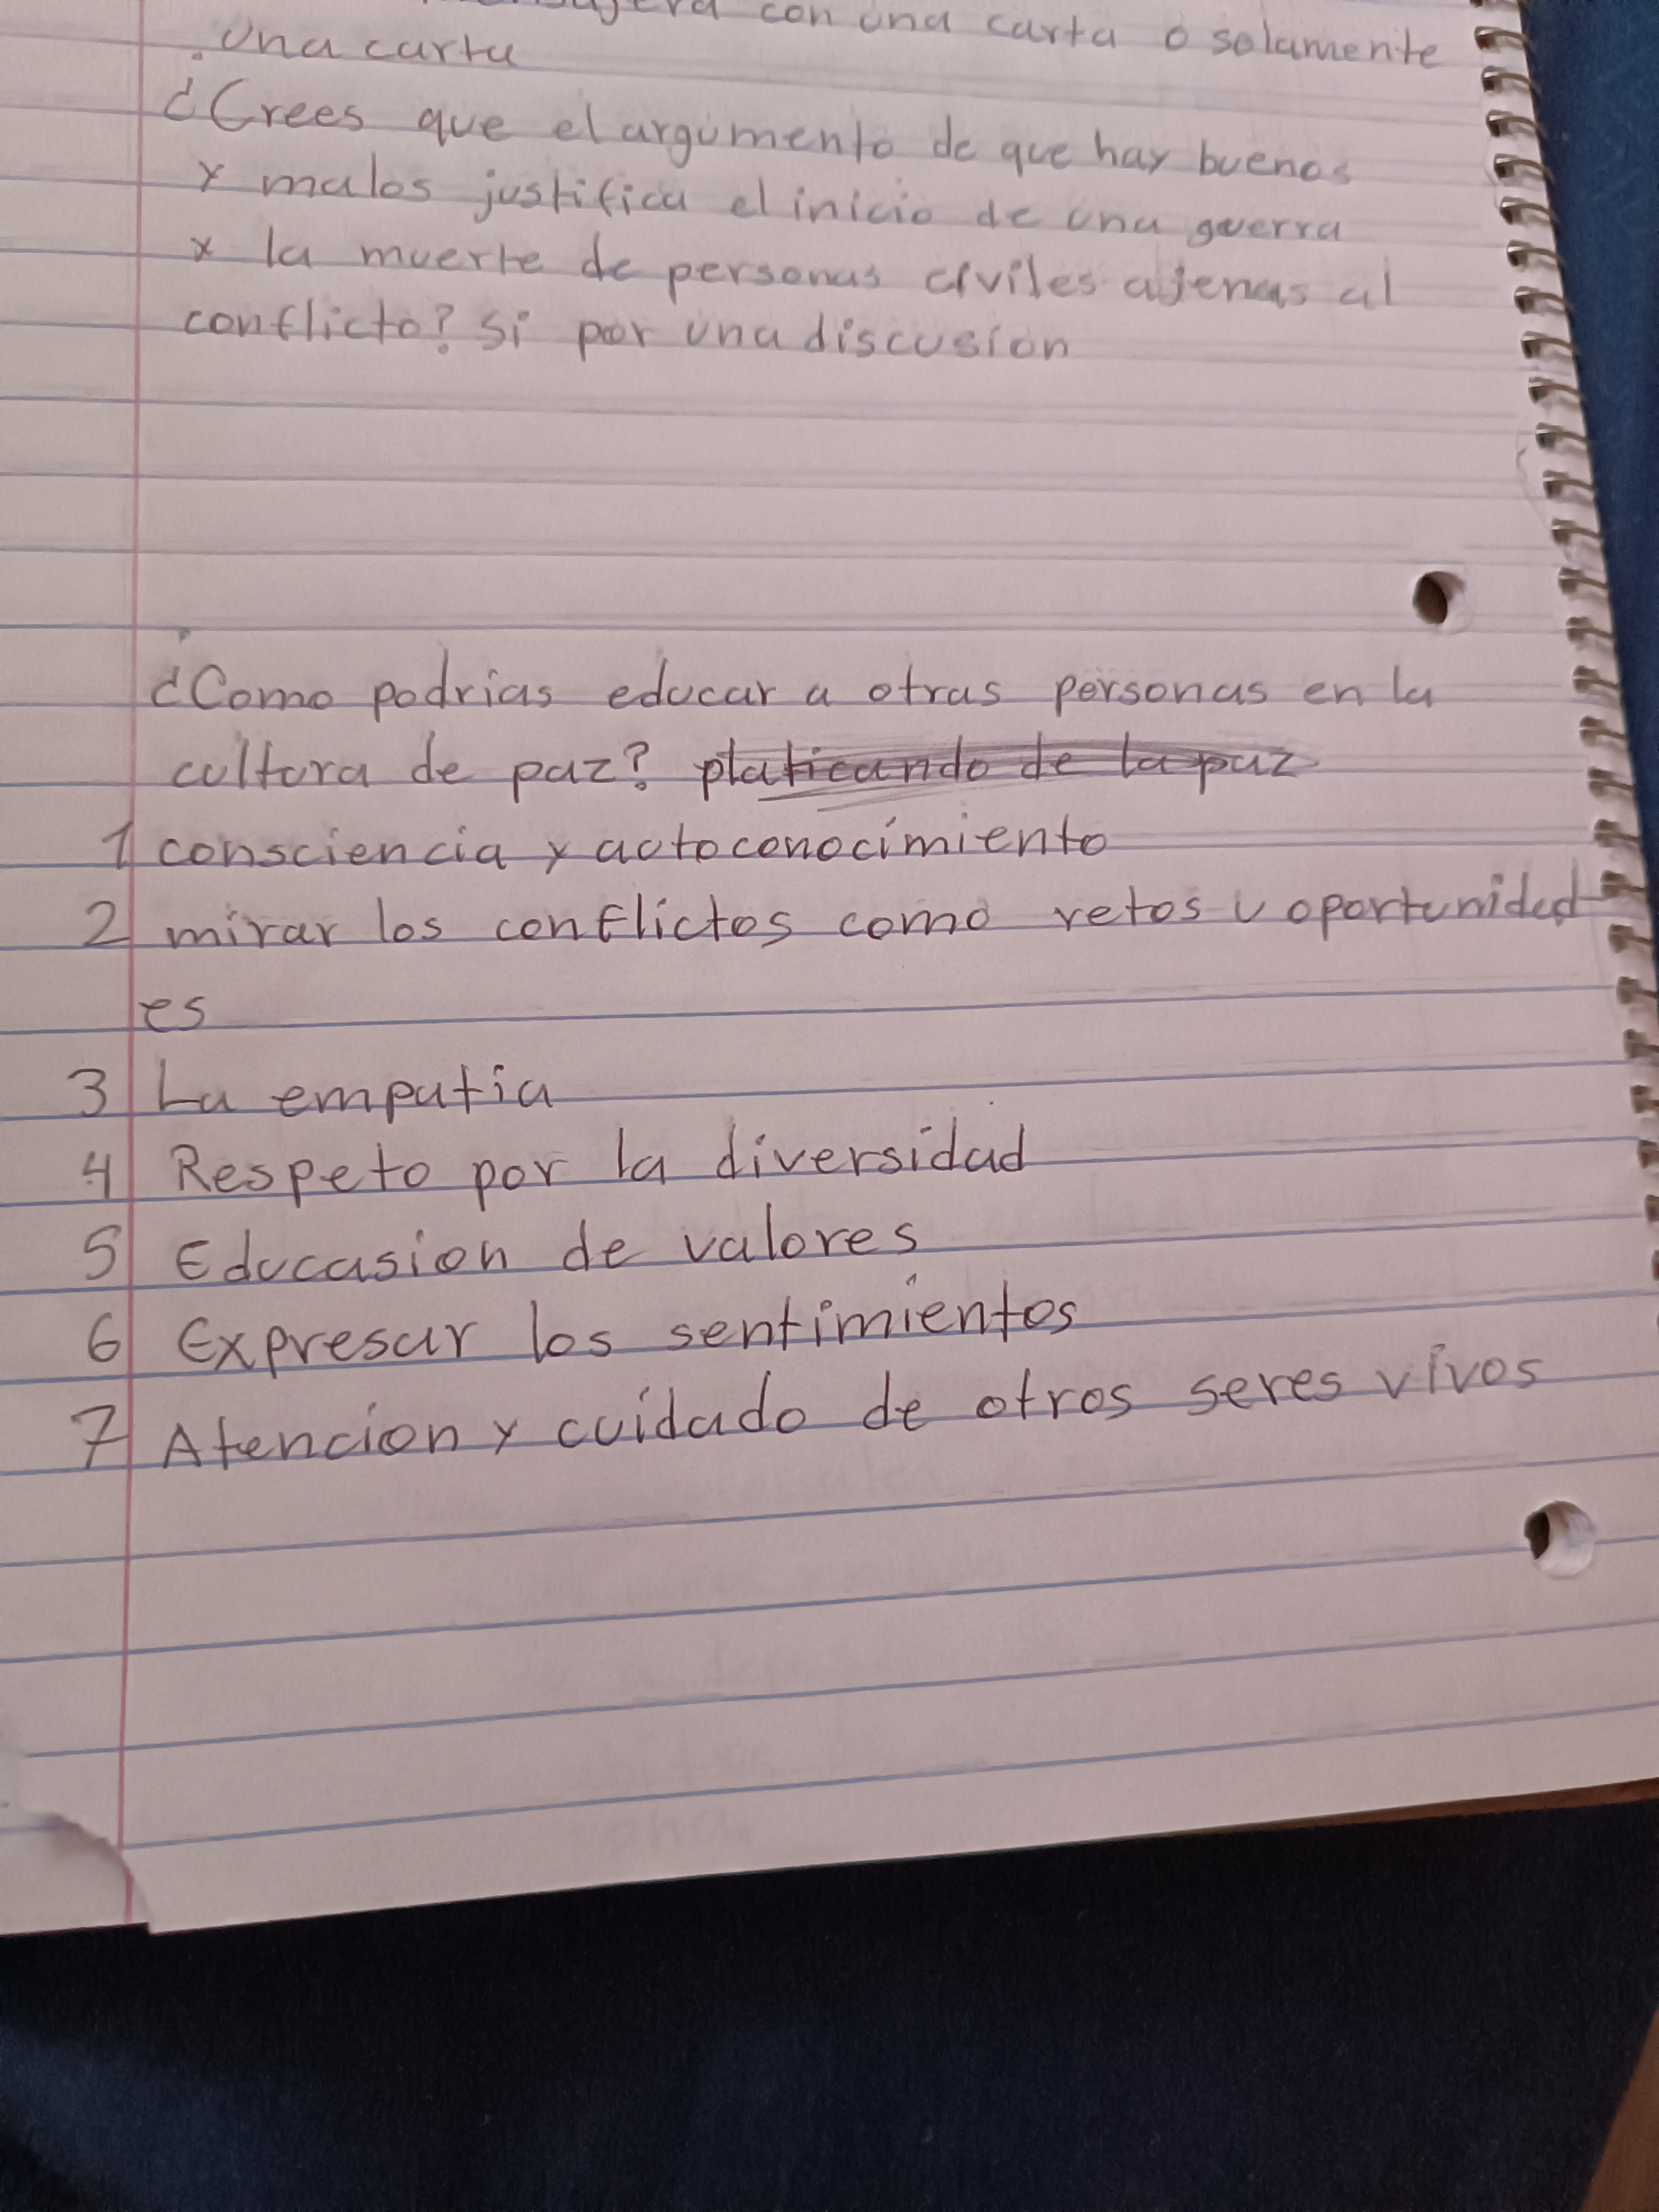 con una carta o solamente
una carta
¿Crees que el argumento de que hay buenos
y malos justifica el inicio de una guerra
y la muerte de personas civiles ajenas al
conflicto? Si por una discusion
¿Como podrias educar a otras personas en la
cultura de paz? platicando de la paz
1 consciencia y autoconocimiento
2 mirar los conflictos como retos u oportunidad
es
3 La empatia
4 Respeto por la diversidad
5 Educasion de valores
6 Expresar los sentimientos
7 Atencion y cuidado de otros seres vivos